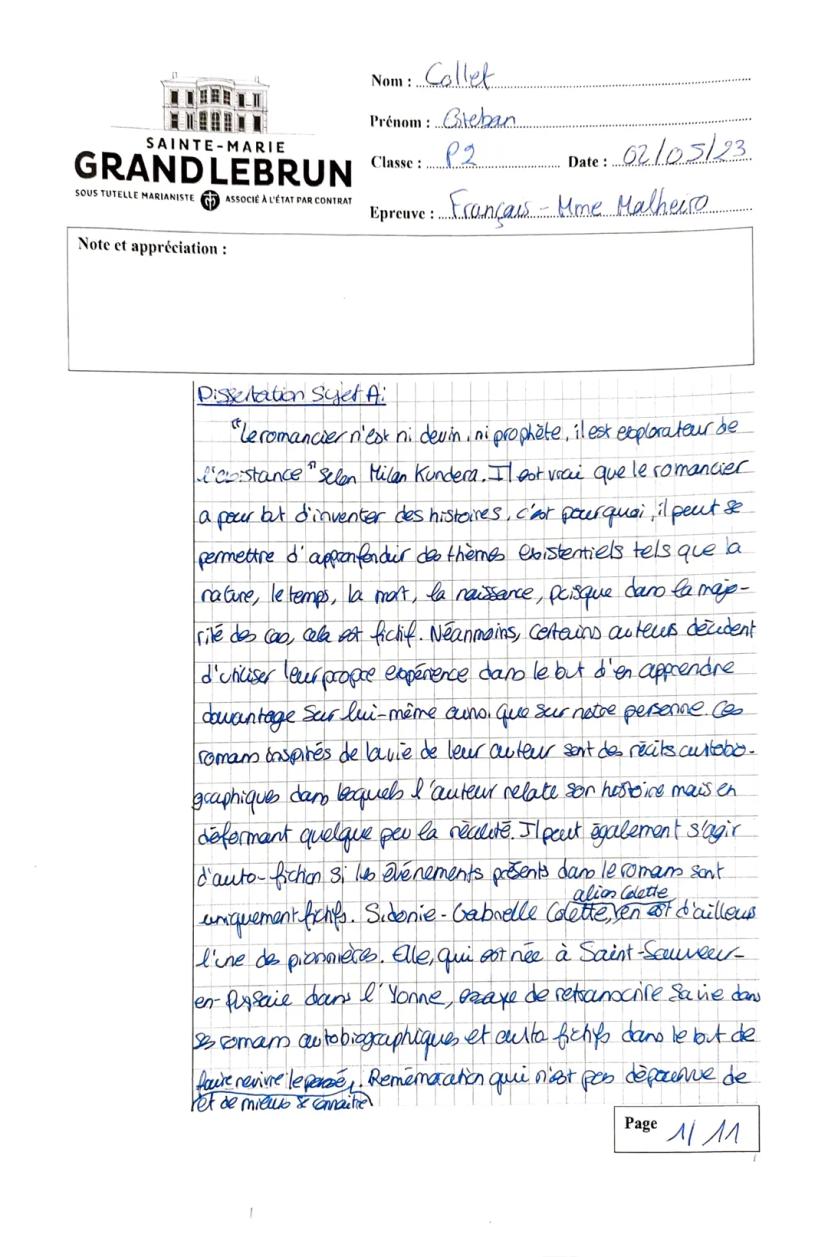 SAINTE-MARIE
GRAND LEBRUN
SOUS TUTELLE MARIANISTE ASSOCIÉ À L'ÉTAT PAR CONTRAT
Nom : Collet
Prénom : Esteban
Classe : P2 Date : 02/05/23
Epreuve : Français - Mme Malheiro
Note et appréciation :
Dissertation Sujet A:
"Le romancier n'est ni devin, ni prophète, il est explorateur de
l'existance" selon Milan Kundera. Il est vrai que le romancier
a pour but d'inventer des histoires, c'est pourquoi, il peut se
permettre d'approfondir des thèmes existentiels tels que la
nature, le temps, la mort, la naissance, puisque dans la majo-
rité des cas, cela est fictif. Néanmoins, certains auteurs décident
d'utiliser leur propre expérience dans le but d'en apprendre
davantage sur lui-même ainsi que sur notre personne. Ces
romans inspirés de la vie de leur auteur sont des récits autobio-
graphiques dans lesquels l'auteur relate son histoire mais en
déformant quelque peu la réalité. Il peut également s'agir
d'auto-fiction si les événements présents dans le romans sont
alias Colette
uniquement fictifs. Sidonie-Gabrielle Colette, en est d'ailleurs
l'une des pionnières. Elle, qui est née à Saint-Sauveur-
en-Puysaie dans l'Yonne, essaye de retranscrire sa vie dans
ses romans autobiographiques et auto fictifs dans le but de
faire revivre le passé, . Remémoration qui n'est pas dépourvue de
et de mieux se connaître
Page 1/11